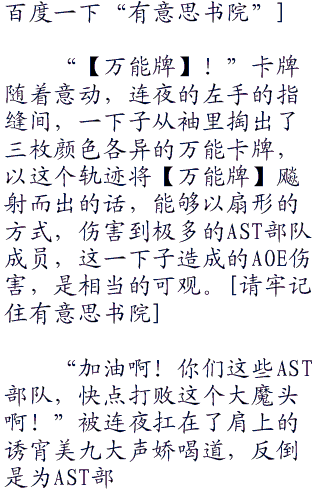 百度一下“有意思书院”]
“【万能牌】！”卡牌
随着意动，连夜的左手的指
缝间，一下子从袖里掏出了
三枚颜色各异的万能卡牌，
以这个轨迹将【万能牌】飚
射而出的话，能够以扇形的
方式，伤害到极多的AST部队
成员，这一下子造成的AOE伤
害，是相当的可观。[请牢记
住有意思书院]
“加油啊！你们这些AST
部队，快点打败这个大魔头
啊！”被连夜扛在了肩上的
诱宵美九大声娇喝道，反倒
是为AST部